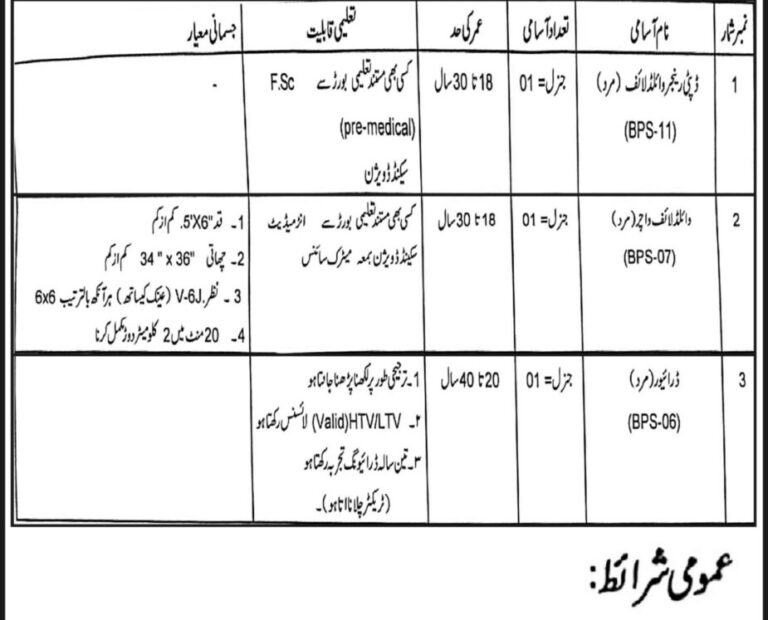 نمبر شمار	نام آسامی	تعداد آسامی	عمر کی حد	تعلیمی قابلیت	جسمانی معیار
1	ڈپٹی رینجر وائلڈ لائف (مرد)	جنرل= 01	18 تا 30 سال	کسی بھی مستند تعلیمی بورڈ سے F.Sc	-
(BPS-11)	(pre-medical)
سیکنڈ ڈویژن
2	وائلڈ لائف واچر (مرد)	جنرل= 01	18 تا 30 سال	کسی بھی مستند تعلیمی بورڈ سے انٹرمیڈیٹ	1۔ قد "5'X6. کم از کم
(BPS-07)	سیکنڈ ڈویژن بمعہ میٹرک سائنس	2۔ چھاتی "34 x "36 کم از کم
3 ۔ نظر V-6J. (عینک کیساتھ) ہر آنکھ بالترتیب 6x6
4۔ 20 منٹ میں 2 کلومیٹر دوڑ مکمل کرنا
3	ڈرائیور (مرد)	جنرل= 01	20 تا 40 سال	1۔ ترجیحی طور پر لکھنا پڑھنا جانتا ہو
(BPS-06)	۲۔ HTV/LTV(Valid) لائسنس رکھتا ہو
۳۔ تین سالہ ڈرائیونگ تجربہ رکھتا ہو
(ٹریکٹر چلانا اتا ہو)۔
عمومی شرائط: